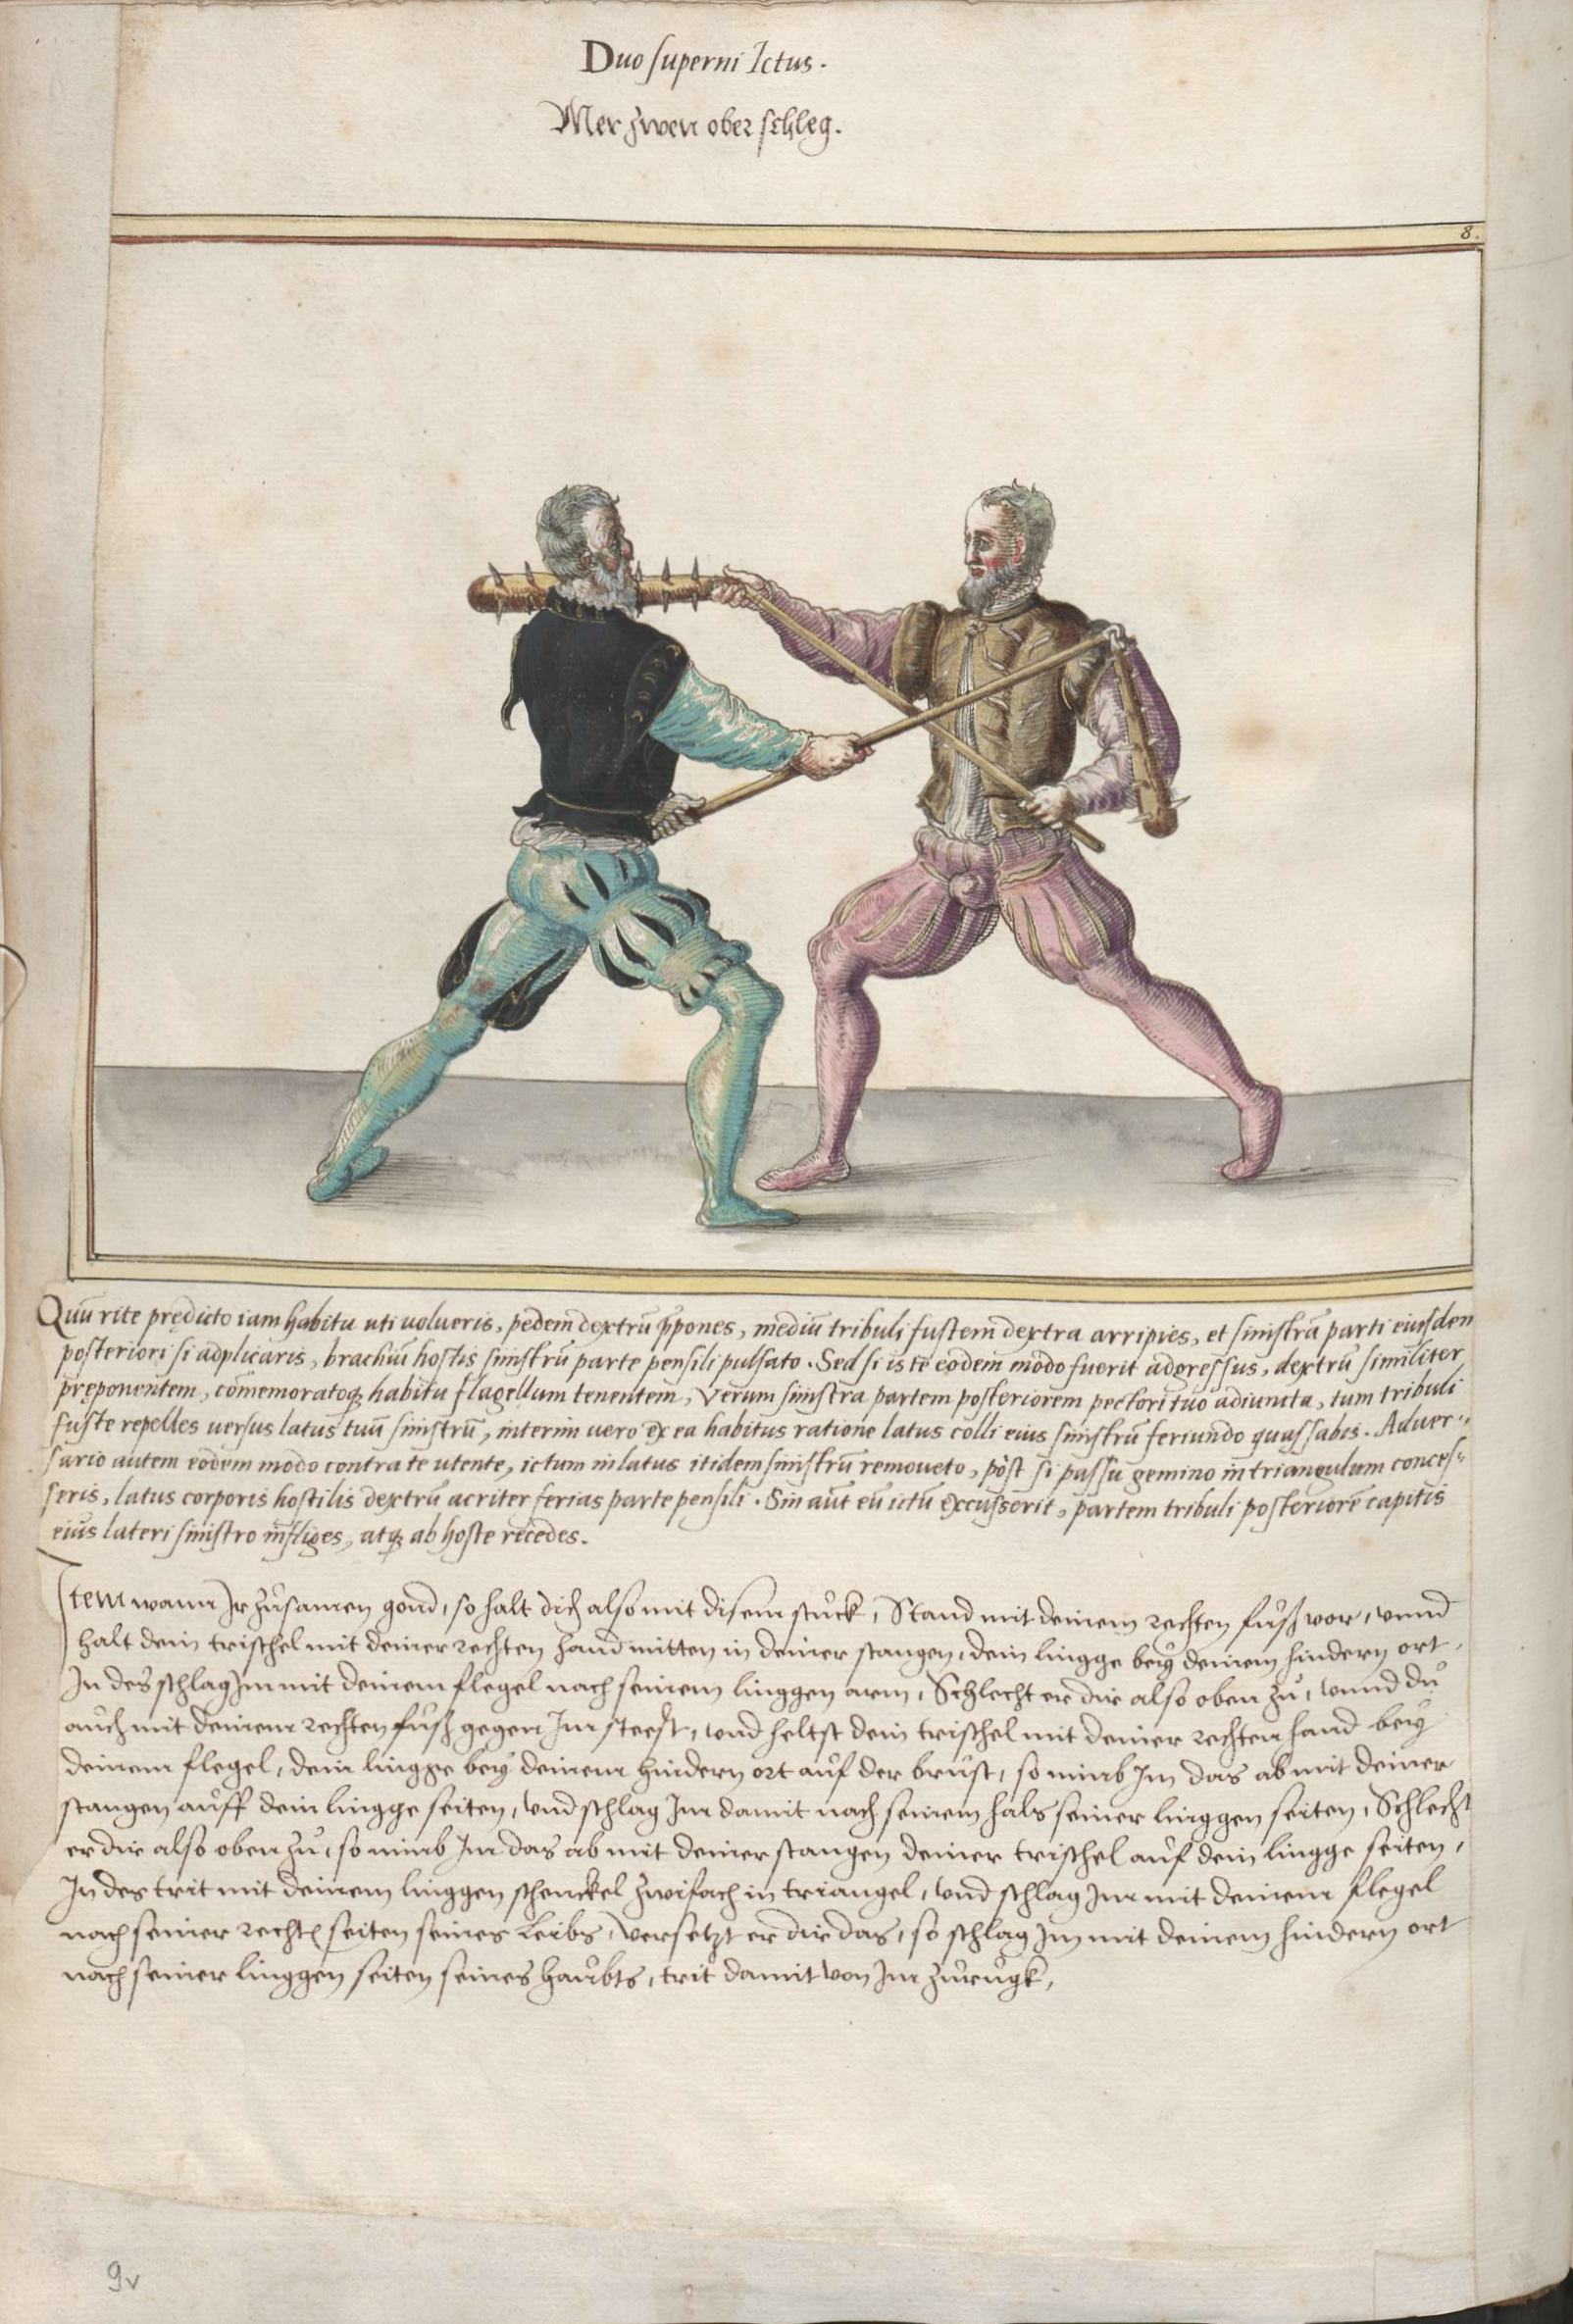 Duo superni Ictus.
Mer zwen ober schleg.
8.
Quū rite prędicto iam habitu uti uolueris, pedem dextrū p̄pones, mediū tribuli fustem dextra arripies, et sinistrā parti eiusdem
posteriori si adplicaris, brachiū hostis sinistrū parte pensili pulsato. Sed si is te eodem modo fuerit adgressus, dextrū similiter
pręponentem, cōmemoratoq; habitu flagellum tenentem, Verum sinistra partem posteriorem pectori tuo adiuncta, tum tribuli
fuste repelles uersus latus tuū sinistrū, interim uero ex ea habitus ratione latus colli eius sinistrū feriundo quassabis. Aduer-
sario autem eodem modo contra te utente, ictum in latus itidem sinistrū remoueto, pòst si passu gemino in triangulum conces-
seris, latus corporis hostilis dextrū acriter ferias parte pensili. Sin aūt eū ictū excusserit, partem tribuli posteriorē capitis
eius lateri sinistro infliges, atq; ab hoste recedes.
Item wann Ir zůsamen gond, so halt dich also mit disem stuck, Stand mit deinem rechten fůß vor, vnnd
halt dein trischel mit deiner rechten hand mitten in deiner stangen, dein lingge bey deinem hindern ort,
In des schlag Im mit deinem flegel nach seinem linggen arm, Schlecht er dir also oben zů, vnnd du
auch mit deinem rechten fůß gegen Im steest, vnd heltst dein trischel mit deiner rechten hand bey
deinem flegel, dein lingge bey deinem hindern ort auf der brust, so nimb Im das ab mit deiner
stangen auff dein lingge seiten, vnd schlag Im damit nach seinem hals seiner linggen seiten, Schlecht
er dir also oben zů, so nimb Im das ab mit deiner stangen deiner trischel auf dein lingge seiten,
In des trit mit deinem linggen schenckel zwifach in triangel, vnd schlag Im mit deinem flegel
nach seiner rechtē seiten seines leibs, versetzt er dir das, so schlag Im mit deinem hindern ort
nach seiner linggen seiten seines haubts, trit damit von Im zůrugk,
9v